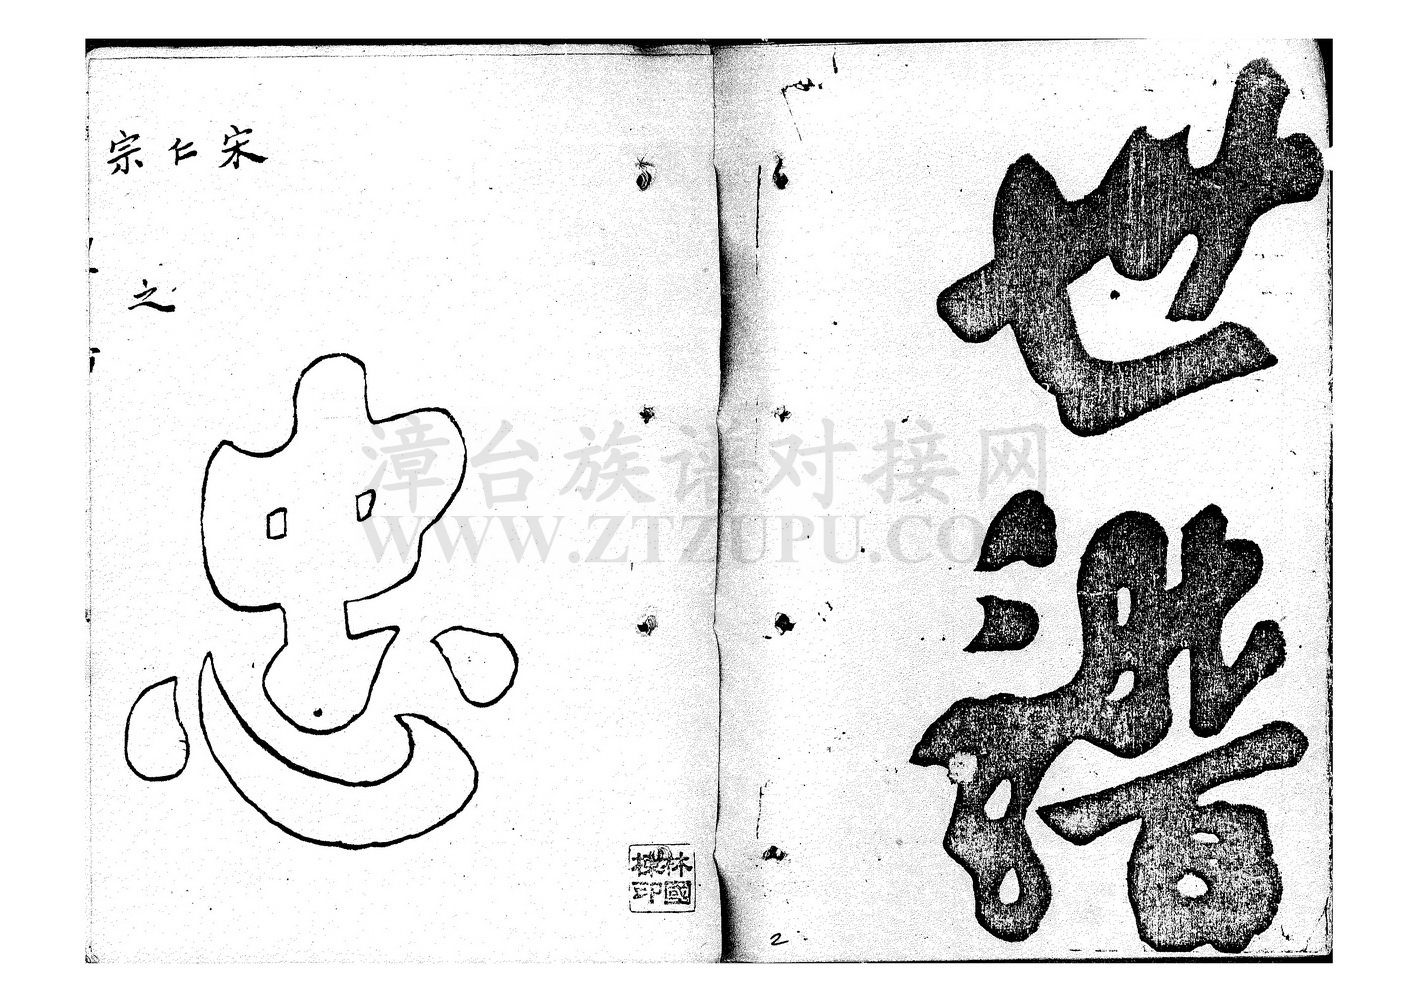 世譜
2
宋仁宗
之
忠
林國樑印
漳台族谱对接网
WWW.ZTZUPU.COM